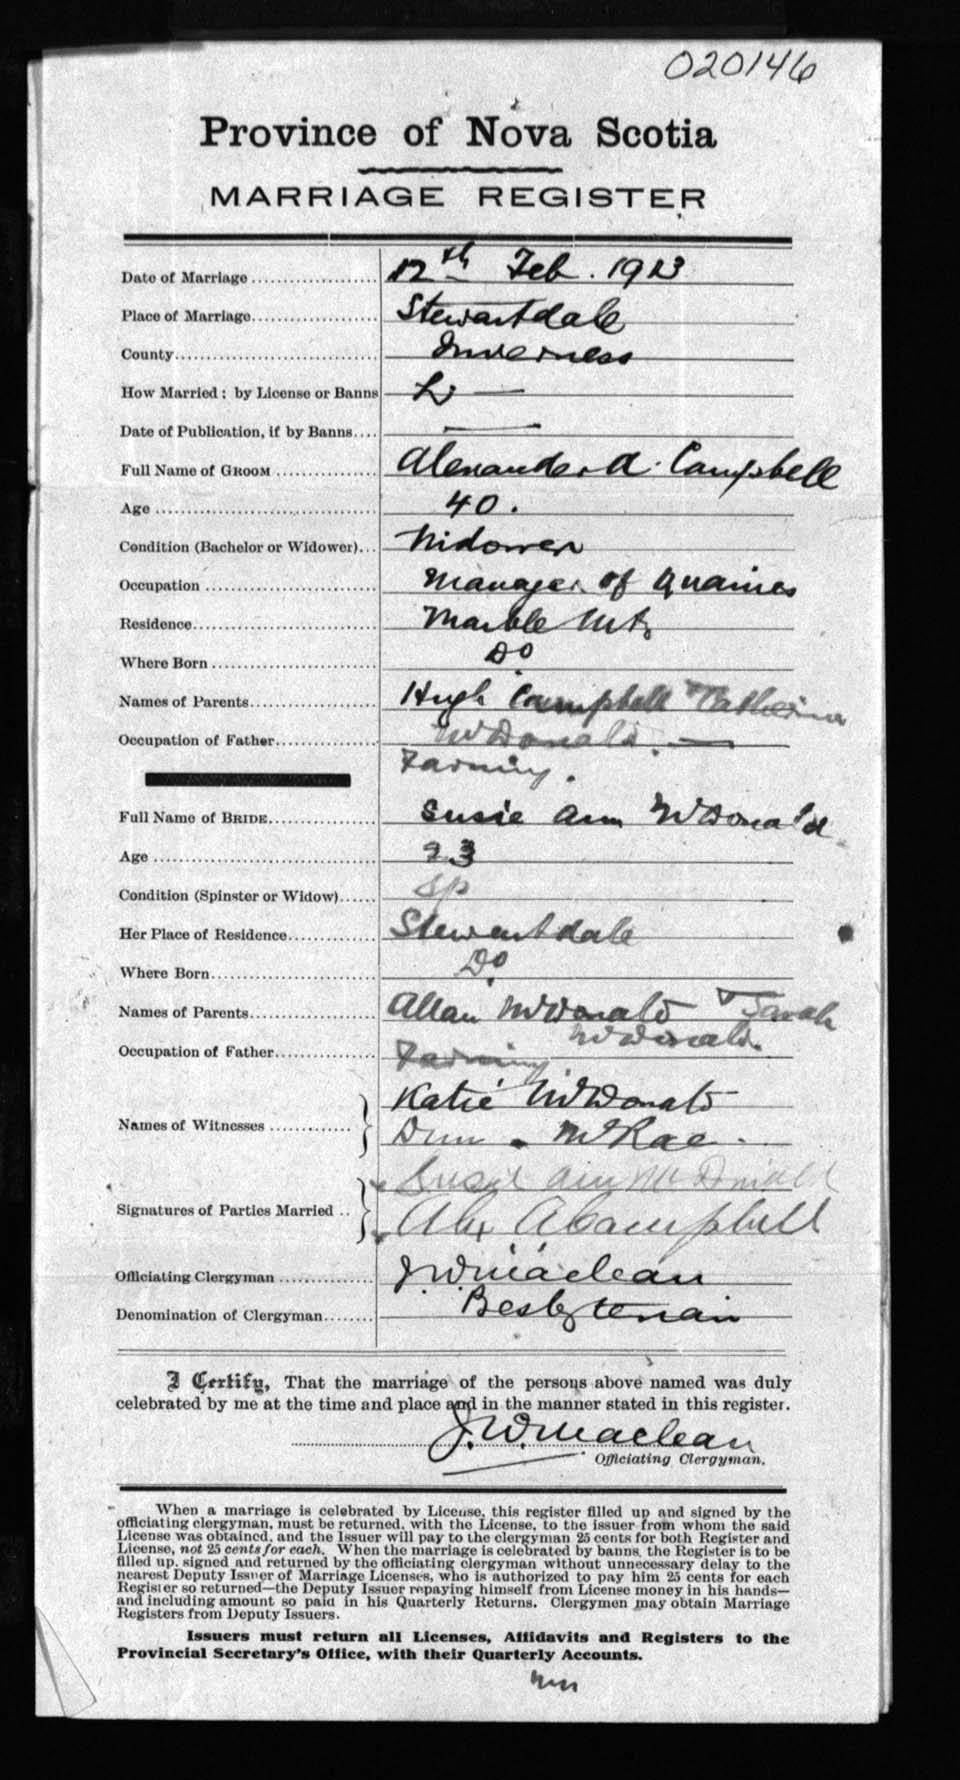 020146
Province of Nova Scotia
MARRIAGE REGISTER
Date of Marriage 12th Feb. 1913
Place of Marriage Stewartdale
County Inverness
How Married: by License or Banns Li —
Date of Publication, if by Banns —
Full Name of GROOM Alexander A. Campbell
Age 40.
Condition (Bachelor or Widower) Widower
Occupation Manager of Quarries
Residence Marble Mt.
Where Born Do
Names of Parents Hugh Campbell + Catherine
McDonald. —
Occupation of Father Farming.
Full Name of BRIDE Susie Ann McDonald
Age 23
Condition (Spinster or Widow) Sp
Her Place of Residence Stewartdale
Where Born Do
Names of Parents Allan McDonald + Sarah
McDonald.
Occupation of Father Farming
Names of Witnesses Katie McDonald
Dun. McRae.
Signatures of Parties Married Susie Ann McDonald
Alex A Campbell
Officiating Clergyman J. W. Maclean
Denomination of Clergyman Presbyterian
I Certify, That the marriage of the persons above named was duly
celebrated by me at the time and place and in the manner stated in this register.
J. W. Maclean
Officiating Clergyman.
When a marriage is celebrated by License, this register filled up and signed by the
officiating clergyman, must be returned, with the License, to the issuer from whom the said
License was obtained, and the Issuer will pay to the clergyman 25 cents for both Register and
License, not 25 cents for each. When the marriage is celebrated by banns, the Register is to be
filled up, signed and returned by the officiating clergyman without unnecessary delay to the
nearest Deputy Issuer of Marriage Licenses, who is authorized to pay him 25 cents for each
Register so returned—the Deputy Issuer repaying himself from License money in his hands—
and including amount so paid in his Quarterly Returns. Clergymen may obtain Marriage
Registers from Deputy Issuers.
Issuers must return all Licenses, Affidavits and Registers to the
Provincial Secretary's Office, with their Quarterly Accounts.